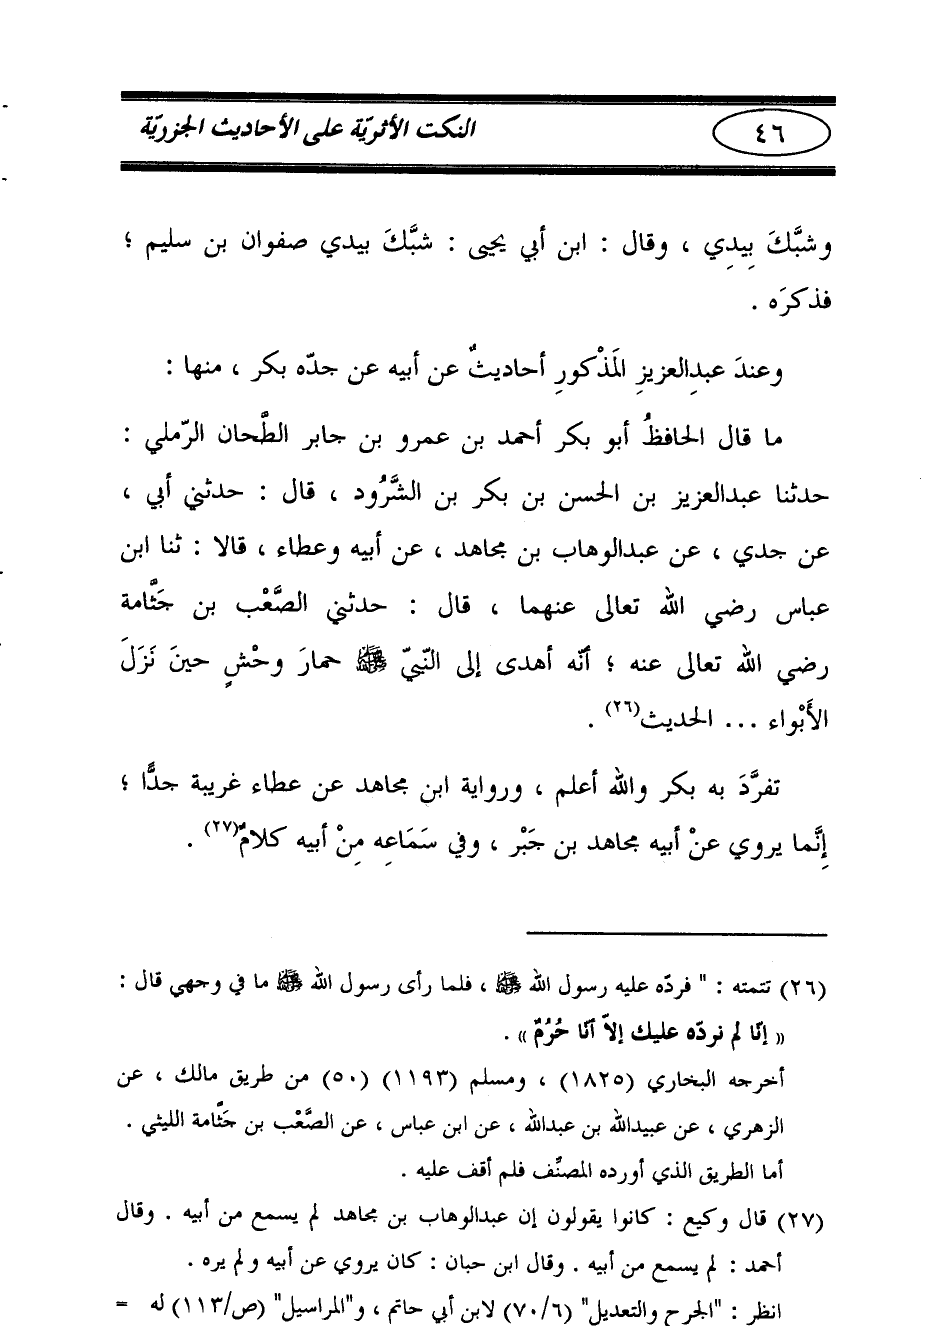 ٤٦
النكت الأثريّة على الأحاديث الجزريّة
وشبَّكَ بِيدِي ، وقال : ابن أبي يحيى : شبَّكَ بيدي صفوان بن سليم ؛
فذكرَه .
وعندَ عبدِالعزيزِ المَذْكورِ أحاديثٌ عن أبيه عن جدّه بكر ، منها :
ما قال الحافظُ أبو بكر أحمد بن عمرو بن جابر الطَّحان الرّملي :
حدثنا عبدالعزيز بن الحسن بن بكر بن الشَّرُود ، قال : حدثني أبي ،
عن جدي ، عن عبدالوهاب بن مجاهد ، عن أبيه وعطاء ، قالا : ثنا ابن
عباس رضي الله تعالى عنهما ، قال : حدثني الصَّعْب بن جَثَّامة
رضي الله تعالى عنه ؛ أنّه أهدى إلى النّبيّ ﷺ حمارَ وحْشٍ حينَ نَزَلَ
الأَبْواء ... الحديث(٢٦) .
تفرَّدَ به بكر والله أعلم ، ورواية ابن مجاهد عن عطاء غريبة جدًّا ؛
إِنَّما يروي عنْ أبيه مجاهد بن جَبْر ، وفي سَمَاعِه مِنْ أبيه كلامٌ(٢٧) .
(٢٦) تتمته : " فردّه عليه رسول الله ﷺ ، فلما رأى رسول الله ﷺ ما في وجهي قال :
« إنّا لم نردّه عليك إلاّ أنّا حُرُمٌ » .
أخرجه البخاري (١٨٢٥) ، ومسلم (١١٩٣) (٥٠) من طريق مالك ، عن
الزهري ، عن عبيدالله بن عبدالله ، عن ابن عباس ، عن الصَّعْب بن جَثَّامة الليثي .
أما الطريق الذي أورده المصنِّف فلم أقف عليه .
(٢٧) قال وكيع : كانوا يقولون إن عبدالوهاب بن مجاهد لم يسمع من أبيه . وقال
أحمد : لم يسمع من أبيه . وقال ابن حبان : كان يروي عن أبيه ولم يره .
انظر : "الجرح والتعديل" (٧٠/٦) لابن أبي حاتم ، و"المراسيل" (ص/١١٣) له =